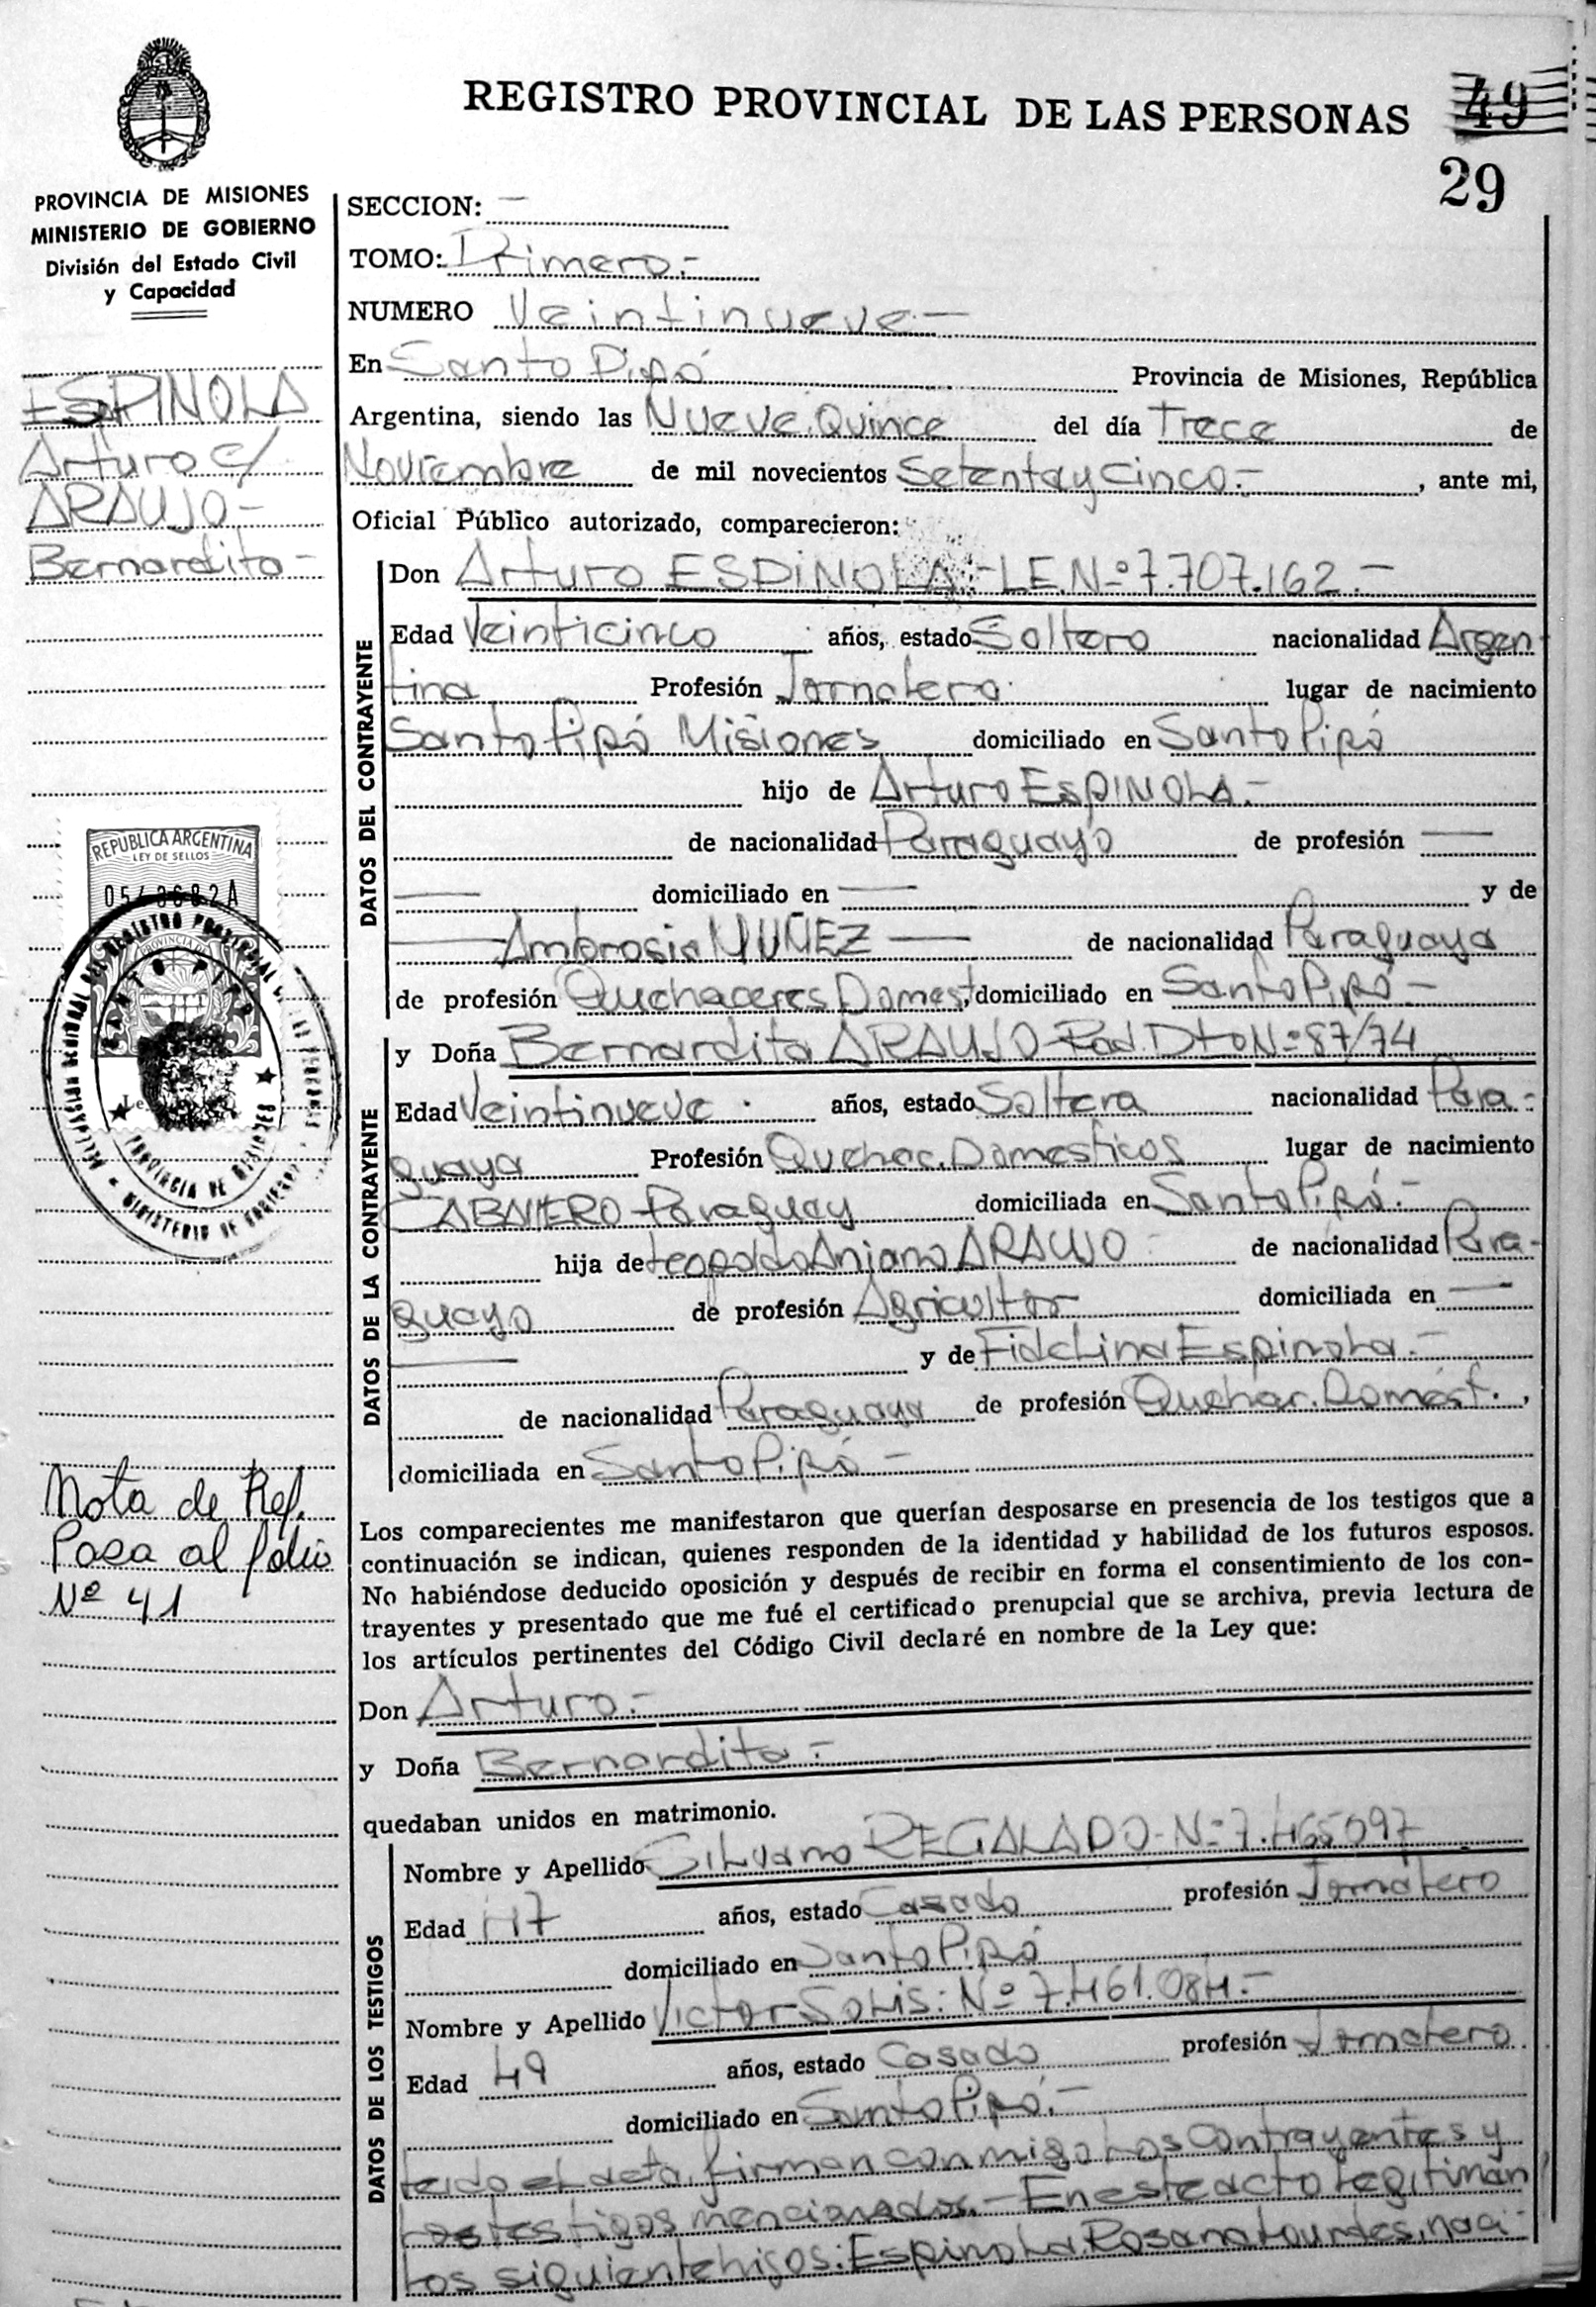 REGISTRO PROVINCIAL DE LAS PERSONAS 49
29
PROVINCIA DE MISIONES
MINISTERIO DE GOBIERNO
División del Estado Civil
y Capacidad
ESPINOLA
Arturo c/
ARAUJO-
Bernardita-
REPUBLICA ARGENTINA
LEY DE SELLOS
SANTO PIPO
PROVINCIA DE MISIONES
MINISTERIO DE GOBIERNO
Nota de Ref.
Pasa al folio
Nº 41
SECCION: —
TOMO: Primero.-
NUMERO Veintinueve.-
En Santo Pipó Provincia de Misiones, República
Argentina, siendo las Nueve.Quince del día Trece de
Noviembre de mil novecientos Setenta y Cinco.- , ante mi,
Oficial Público autorizado, comparecieron:
DATOS DEL CONTRAYENTE
Don Arturo ESPINOLA.-L.E.Nº7.707.162.-
Edad Veinticinco años, estado Soltero nacionalidad Argen-
tina Profesión Jornalero lugar de nacimiento
Santo Pipó Misiones domiciliado en Santo Pipó
hijo de Arturo EspINOLA.-
de nacionalidad Paraguayo de profesión —
— domiciliado en — y de
— Ambrosia NUÑEZ — de nacionalidad Paraguaya
de profesión Quehaceres Domest, domiciliado en Santo Pipó-
DATOS DE LA CONTRAYENTE
y Doña Bernardita ARAUJO-Rad.Dto Nº87/74
Edad Veintinueve años, estado Soltera nacionalidad Para-
guaya Profesión Quehac.Domesticos lugar de nacimiento
Paraguay domiciliada en Santo Pipó.-
hija de Leopoldo Aniano ARAUJO- de nacionalidad Para-
guayo de profesión Agricultor domiciliada en —
— y de Fidelina Espinola.-
de nacionalidad Paraguaya de profesión Quehac.Domést. ,
domiciliada en Santo Pipó-
Los comparecientes me manifestaron que querían desposarse en presencia de los testigos que a
continuación se indican, quienes responden de la identidad y habilidad de los futuros esposos.
No habiéndose deducido oposición y después de recibir en forma el consentimiento de los con-
trayentes y presentado que me fué el certificado prenupcial que se archiva, previa lectura de
los artículos pertinentes del Código Civil declaré en nombre de la Ley que:
Don Arturo.-
y Doña Bernardita.-
quedaban unidos en matrimonio.
DATOS DE LOS TESTIGOS
Nombre y Apellido Silvano REGALADO-Nº7.465097
Edad 47 años, estado Casado profesión Jornalero
domiciliado en Santo Pipó
Nombre y Apellido Victor Solis: Nº 7.461.084.-
Edad 49 años, estado Casado profesión Jornalero
domiciliado en Santo Pipó.-
Leido el acta, firman conmigo Los Contrayentes y
Los testigos mencionados.-En este acto Legitiman
Los siguiente hijos: Espinola.Rosana Lourdes, naci-